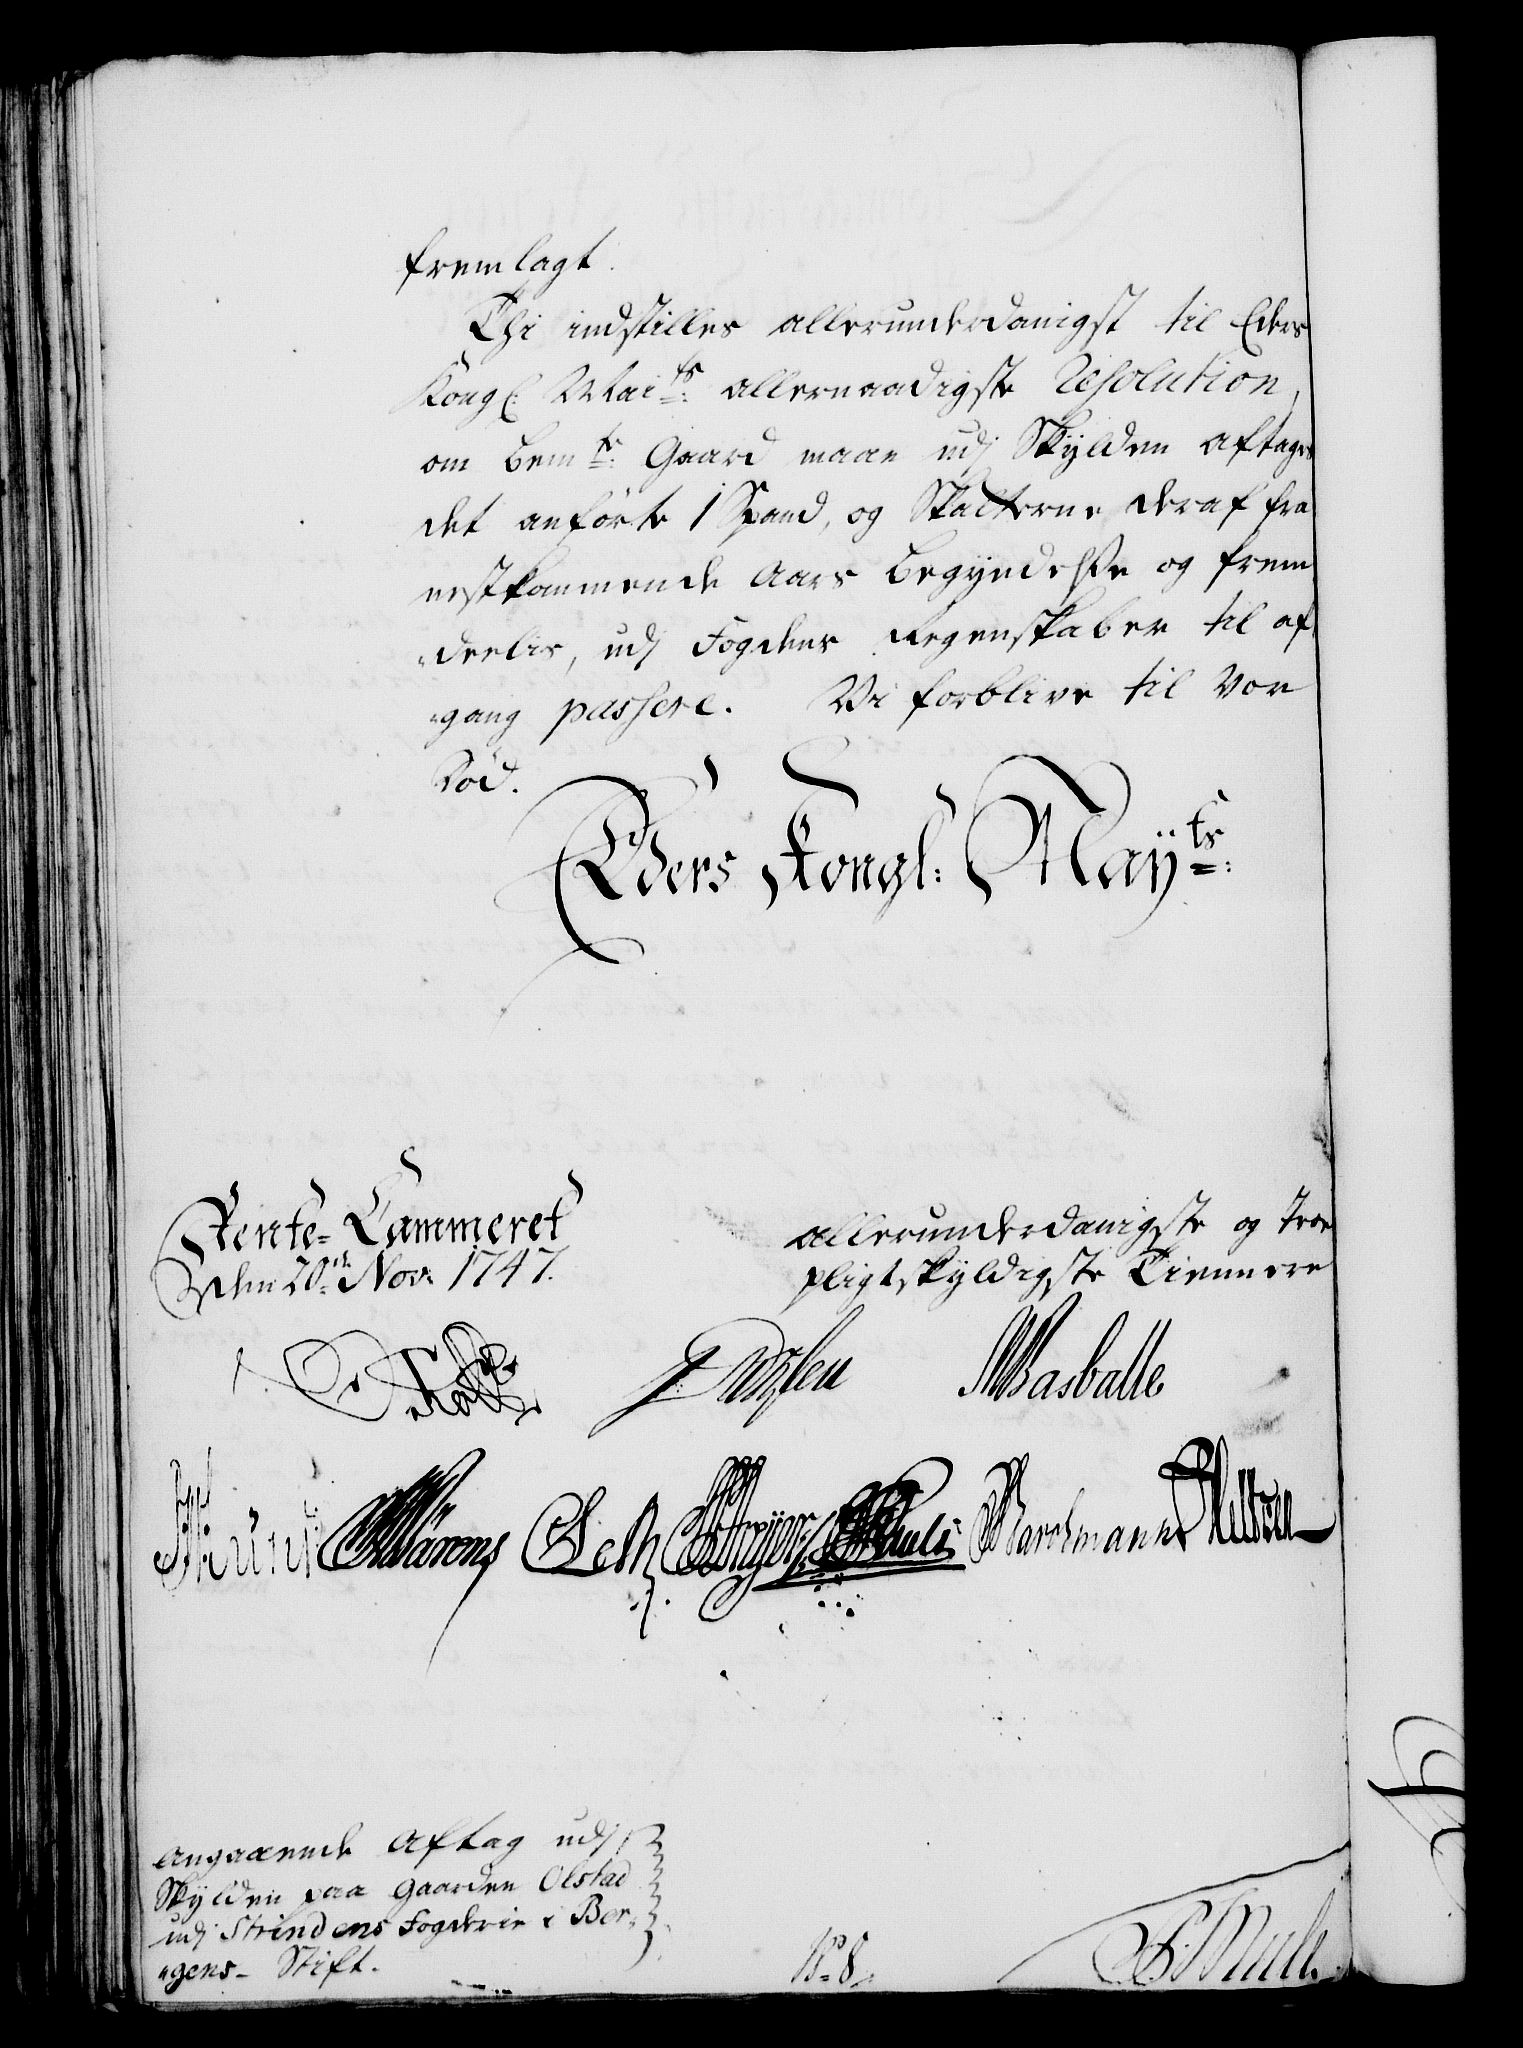 fremlagt.
Thi indstilles allerunderdanigst til Eders
Kongl: Mai:ts allernaadigste Resolution,
om bem:te Gaard maae udj Skylden aftages
det anförte 1 Spand, og Skatterne deraf fra
nestkommende Aars Begyndelse og frem
"deelis, udj Fogdens Regenskaber til af
"gang passere. Vi forblive til vor
död.
Eders Kongl: Mayts:
Rente-Cammeret
den 20de Nov: 1747.
allerunderdanigste og troe
pligtskyldigste Tiennere
JWBasballe
Leth Pauli
angaaende Aftag udj
Skylden paa Gaarden Olstad
udj Strindens Fogderie i Ber-
"gens- Stift.
No 8.